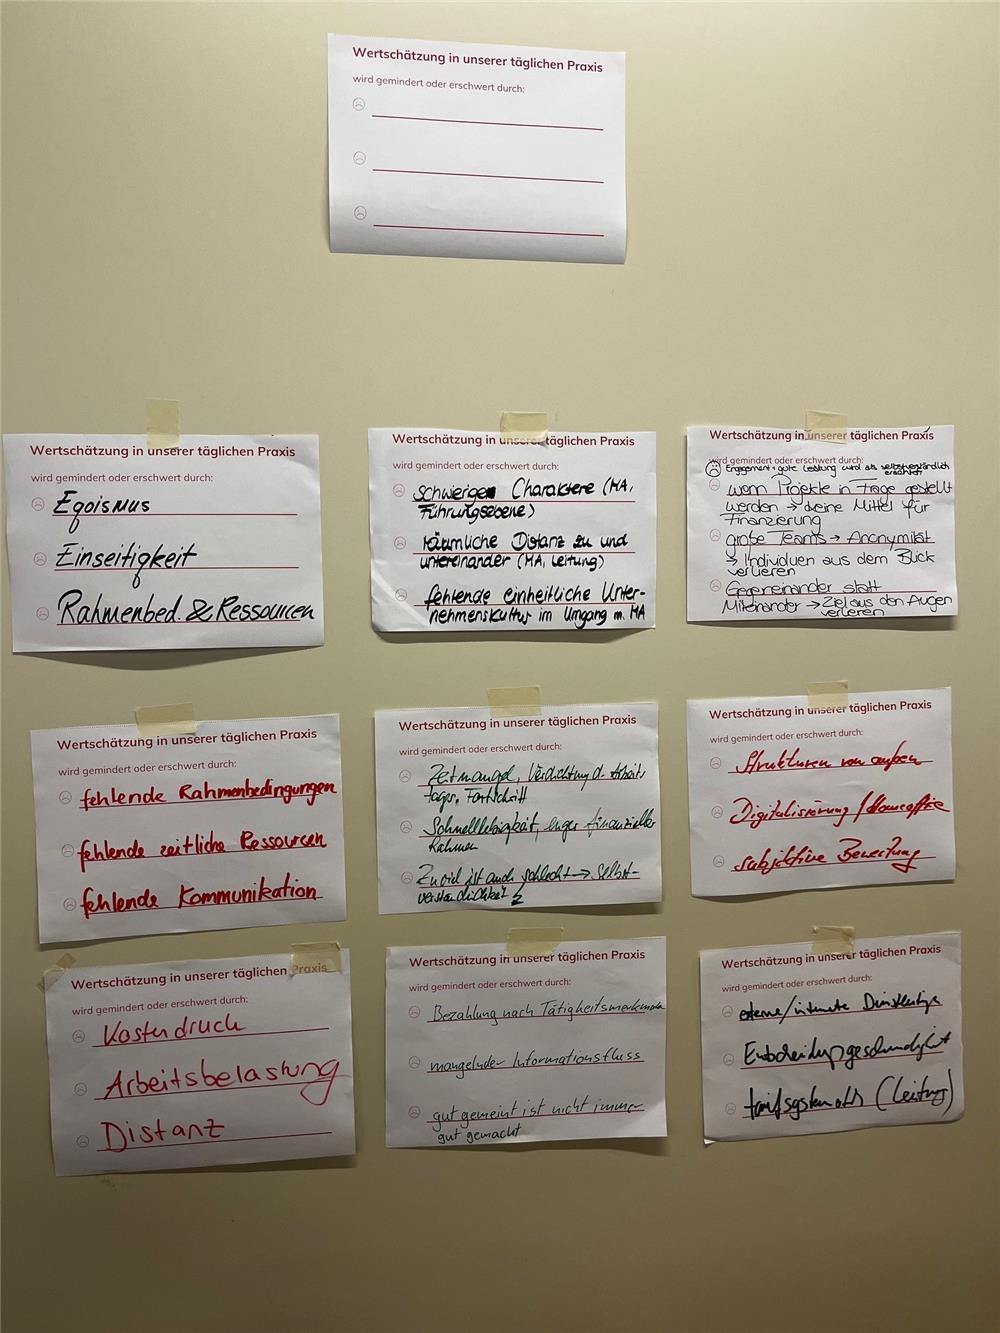 Wertschätzung in unserer täglichen Praxis
wird gemindert oder erschwert durch:
Wertschätzung in unserer täglichen Praxis
wird gemindert oder erschwert durch:
Egoismus
Einseitigkeit
Rahmenbed. & Ressourcen
Wertschätzung in unserer täglichen Praxis
wird gemindert oder erschwert durch:
schwierige Charaktere (MA,
Führungsebene)
räumliche Distanz zu und
untereinander (MA, Leitung)
fehlende einheitliche Unter-
nehmenskultur im Umgang m. MA
Wertschätzung in unserer täglichen Praxis
wird gemindert oder erschwert durch:
Engagement + gute Leistung wird als selbstverständlich
erachtet
wenn Projekte in Frage gestellt
werden → keine Mittel für
Finanzierung
große Teams → Anonymität
→ Individuen aus dem Blick
verlieren
Gegeneinander statt
Miteinander → Ziel aus den Augen
verlieren
Wertschätzung in unserer täglichen Praxis
wird gemindert oder erschwert durch:
fehlende Rahmenbedingungen
fehlende zeitliche Ressourcen
fehlende Kommunikation
Wertschätzung in unserer täglichen Praxis
wird gemindert oder erschwert durch:
Zeitmangel, Verdichtung d. Arbeits
tages, Fortschritt
Schnelllebigkeit, enger finanzieller
Rahmen
Zuviel ist auch schlecht → Selbst-
verständlichkeit
Wertschätzung in unserer täglichen Praxis
wird gemindert oder erschwert durch:
Strukturen von außen
Digitalisierung / Homeoffice
subjektive Bewertung
Wertschätzung in unserer täglichen Praxis
wird gemindert oder erschwert durch:
Kostendruck
Arbeitsbelastung
Distanz
Wertschätzung in unserer täglichen Praxis
wird gemindert oder erschwert durch:
Bezahlung nach Tätigkeitsmerkmalen
mangelnder Informationsfluss
gut gemeint ist nicht immer
gut gemacht
Wertschätzung in unserer täglichen Praxis
wird gemindert oder erschwert durch:
externe/interne
Entscheidungsgeschwindigkeit
(Leitung)